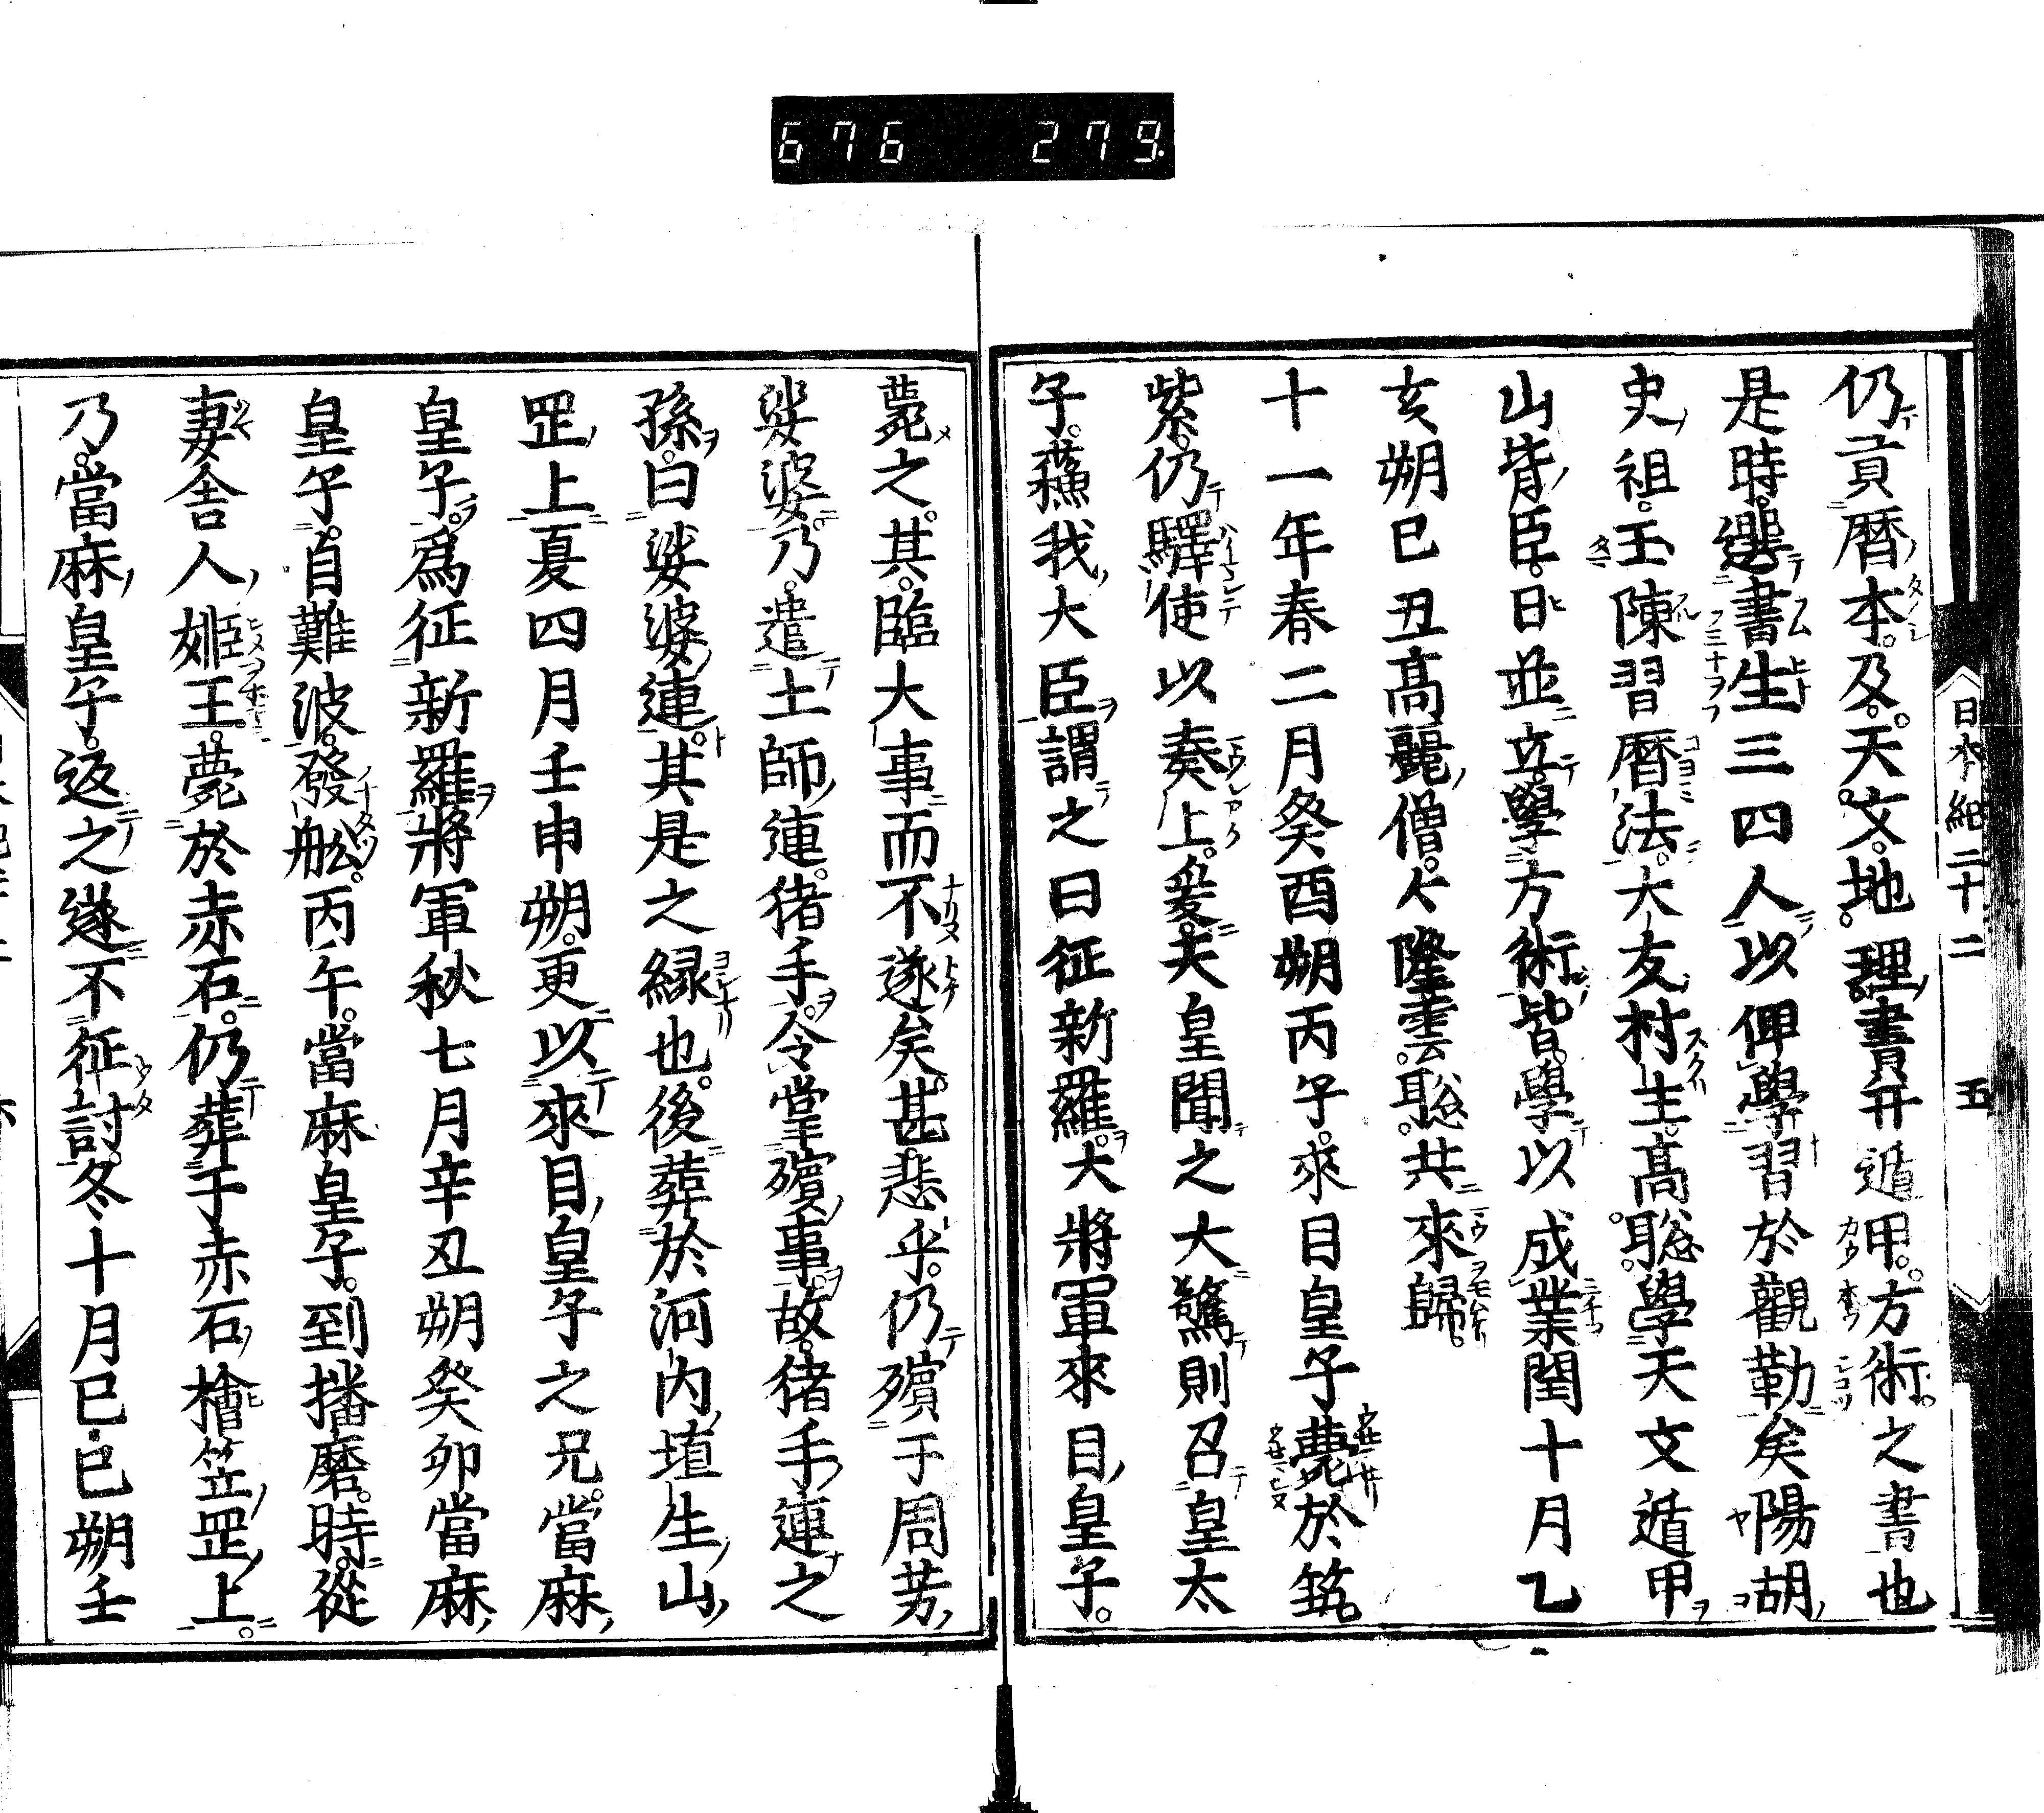 676 279
日本紀二十二 五
仍貢暦本及天文地理書并遁甲方術之書也
是時選書生三四人以俾學習於觀勒矣陽胡
史祖玉陳習暦法大友村主高聡學天文遁甲
山背臣日並立學方術皆學以成業閏十月乙
亥朔己丑高麗僧僧隆雲聡共來歸
十一年春二月癸酉朔丙子來目皇子薨於筑
紫仍驛使以奏上爰天皇聞之大驚則召皇太
子蘇我大臣謂之曰征新羅大將軍來目皇子
薨之其臨大事而不遂矣甚悲乎仍殯于周芳
娑婆乃遣土師連猪手令掌殯事故猪手連之
孫曰娑婆連其是之縁也後葬於河内埴生山
罡上夏四月壬申朔更以來目皇子之兄當麻
皇子爲征新羅將軍秋七月辛丑朔癸卯當麻
皇子自難波發舩丙午當麻皇子到播磨時從
妻舍人姫王薨於赤石仍葬于赤石檜笠罡上
乃當麻皇子返之遂不征討冬十月己巳朔壬